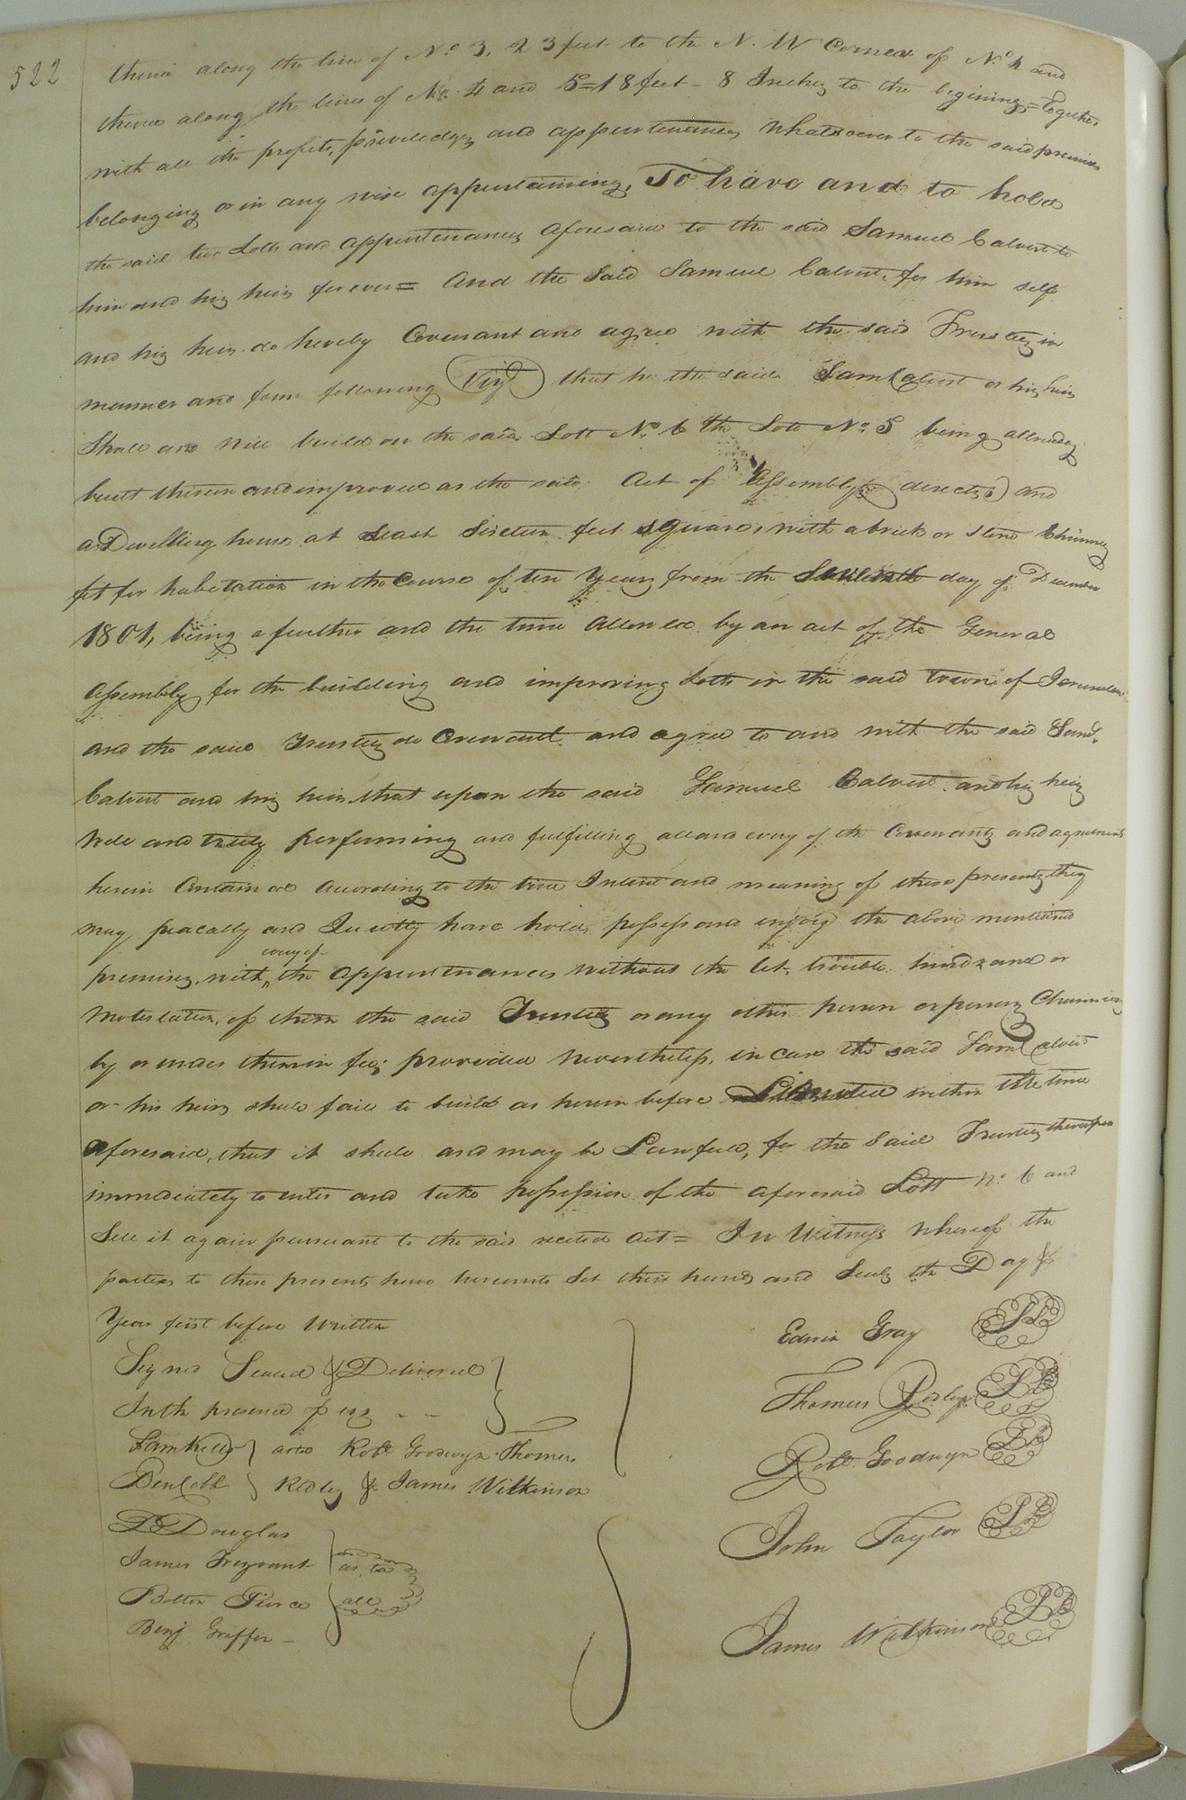 522
thence along the line of No. 3, 23 feet to the N. W Corner of No. 4 and
thence along the lines of No. 4 and 5 = 18 feet - 8 Inches to the begining = Together
with all the profits, priviledges and appurtenances Whatsoever to the said premises
belonging or in any wise appertaining, To have and to hold
the said two Lotts and appurtenances aforesaid to the said Samuel Calvert to
him and his heirs forever = And the Said Samuel Calvert, for him self
and his heirs do hereby Covenant and agree with the said Trustees in
manner and form following (Viz) that he the said Saml Calvert or his heirs
Shall and will build on the said Lott No. 6 the Lott No. 5 being allready
built thereon and improved as the said Act of Assembly directs) and
a Dwelling house at Least Sixteen feet square with a brick or stone Chimney
fit for habitation in the Course of ten Years from the Seventh day of December
1801, being a further and the time Allowed by an act of the General
Assembly for the building and improving Lotts in the said town of Jerusalem
and the said Trustees do Covenant and agree to and with the said Saml.
Calvert and his heirs that upon the said Samuel Calvert and his heirs
well and truly performing and fulfilling all and every of the Covenants and agreements
herein Contained According to the true Intent and meaning of these presents they
may peacably and Quietly have hold, possess and enjoy the above mentioned
premises with every of the appurtenances without the let, trouble hindrance or
Molestation, of them the said Trustees or any other person or persons Claiming
by or under them in fee; provided nevertheless, in case the said Saml Calvert
or his heirs shall fail to build as herein before within the time
aforesaid, that it shall and may be Lawfull, for the Said Trustees thereupon
immediately to enter and take possession of the aforesaid Lott No. 6 and
Sell it again pursuant to the said recited Act = In Witness whereof the
parties to these presents have hereunto Set their hands and Seals the Day &
Year first before Written
Edwin Gray LS
Signed Sealed & Delivered
Thomas Ridley LS
In the presence of us
Saml Kello } as to Robt Goodwyn Thomas
Robt. Goodwyn LS
Ben Cobb } Ridley & James Wilkinson
D Douglas
John Taylor LS
James Trezvant } as to
Bolton Pierce } all
James Wilkinson LS
Benj Griffin